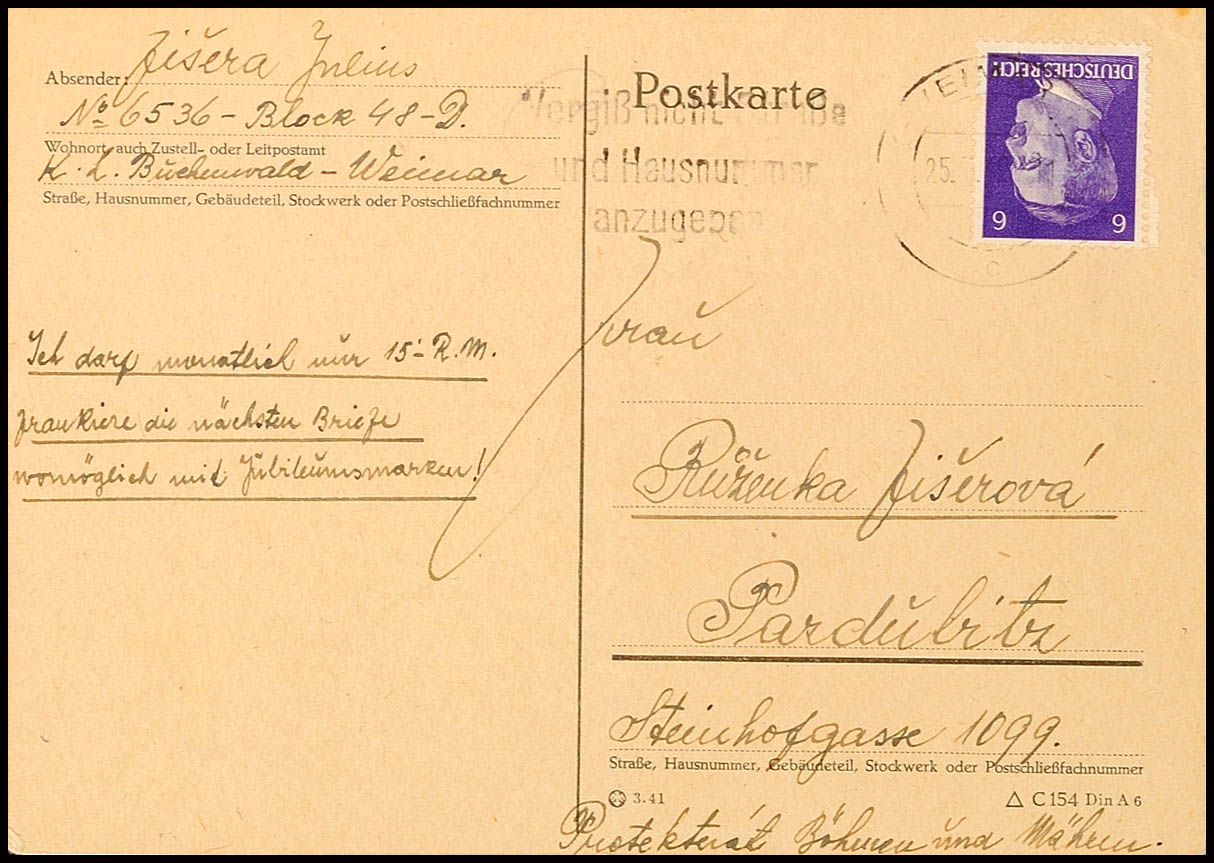 Absender: Jišera Julius
№ 6536 - Block 48-D.
Wohnort, auch Zustell- oder Leitpostamt
K. L. Buchenwald - Weimar
Straße, Hausnummer, Gebäudeteil, Stockwerk oder Postschließfachnummer
Ich darf monatlich nur 15'- R.M.
frankiere die nächsten Briefe
womöglich mit Jubileumsmarken!
Postkarte
Vergiß nicht
und Hausnummer
anzugeben
25.
c
DEUTSCHES REICH
6 6
Frau
Růženka Jišerová
Pardubitz
Steinhofgasse 1099.
Straße, Hausnummer, Gebäudeteil, Stockwerk oder Postschließfachnummer
3.41
△ C 154 Din A 6
Protektorát Böhmen und Mähren.